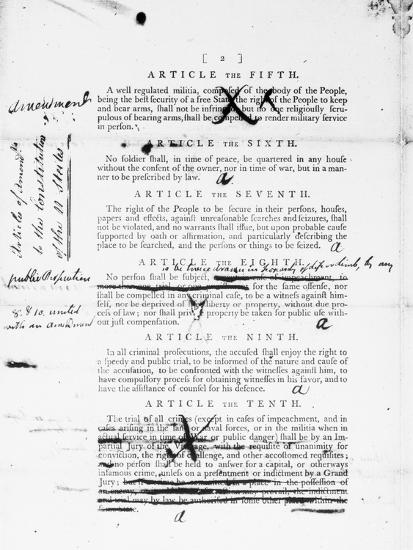 [ 2 ]
ARTICLE THE FIFTH.
A well regulated militia, composed of the body of the People,
being the best security of a free State, the right of the People to keep
and bear arms, shall not be infringed, but no one religiously scru-
pulous of bearing arms, shall be compelled to render military service
in person.
ARTICLE THE SIXTH.
No soldier shall, in time of peace, be quartered in any house
without the consent of the owner, nor in time of war, but in a man-
ner to be prescribed by law.
a
ARTICLE THE SEVENTH.
The right of the People to be secure in their persons, houses,
papers and effects, against unreasonable searches and seizures, shall
not be violated, and no warrants shall issue, but upon probable cause
supported by oath or affirmation, and particularly describing the
place to be searched, and the persons or things to be seized.
a
ARTICLE THE EIGHTH.
to be twice in jeopardy of life or limb, by any
No person shall be subject, except in case of impeachment, to
more than one trial, or one punishment for the same offense, nor
shall be compelled in any criminal case, to be a witness against him-
self, nor be deprived of life, liberty or property, without due pro-
cess of law; nor shall private property be taken for public use with-
out just compensation.
a
ARTICLE THE NINTH.
In all criminal prosecutions, the accused shall enjoy the right to
a speedy and public trial, to be informed of the nature and cause of
the accusation, to be confronted with the witnesses against him, to
have compulsory process for obtaining witnesses in his favor, and to
have the assistance of counsel for his defence.
a
ARTICLE THE TENTH.
The trial of all crimes (except in cases of impeachment, and in
cases arising in the land or naval forces, or in the militia when in
actual service in time of war or public danger) shall be by an Im-
partial Jury of the Vicinage, with the requisite of unanimity for
conviction, the right of challenge, and other accostomed requisites;
no person shall be held to answer for a capital, or otherways
infamous crime, unless on a presentment or indictment by a Grand
Jury; but if a crime be committed in a place in the possession of
an enemy, or in which an insurrection may prevail, the indictment
and trial may by law be authorised in some other place within the
same State.
a
amendment
Articles of
to the Constitution
of the U States
public Prosecution
8. & 10. united
with an amendment